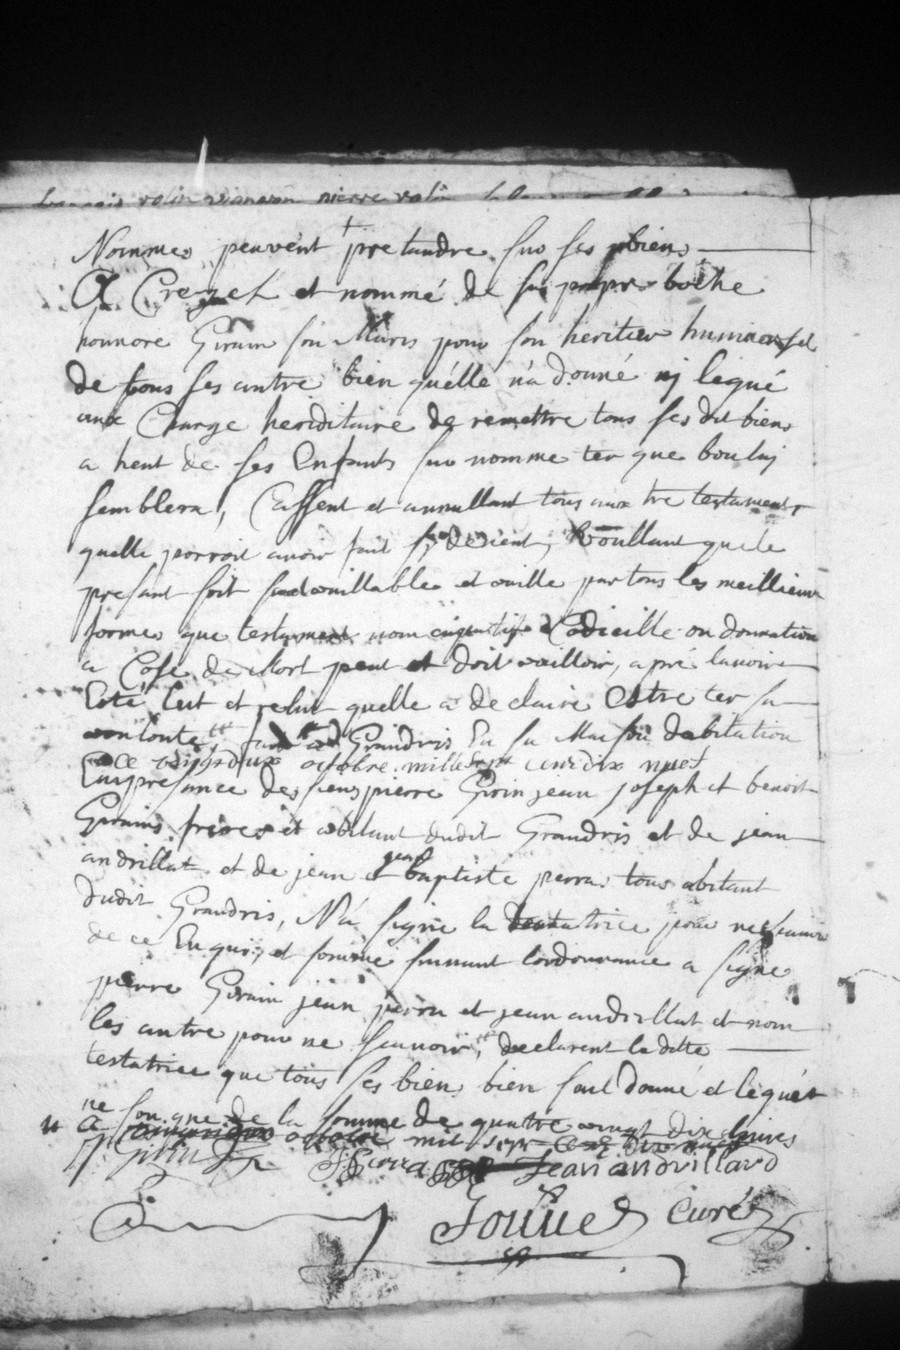 Nommes peuvent pretandre sur ses biens
A Creë et nommé de sa propre boche
honnore Girain son Maris pour son heritier huniversel
de tous ses autre bien quélle n'a donné nj lequé
aux Charge heriditaire de remettre tous ses dit biens
a hent de ses Enfants sur nomme ter que bon luj
semblera, Cassent et annullant tous aux tre testament
quelle porroit avoir fait sy devient, voullant que le
presant soit vaillable et vaille par tous les meillieur
formes que testament nom Codicille ou donnation
a Cose de Mort peut et doit vailloir, apré lavoire
Esté leut et relut quelle a de claire Estre ter sa
vontonte, fait a Grandris En sa Maison dabitation
ce octobre mille sept cent dix nuef
En presance des siens pierre Girin jean joseph et benoit
Girains freres et abitant dudit Grandris et de jean
andrillat et de jean baptiste perras tous abitant
dudit Grandris, N'a signe la testatrice pour ne scavoir
de ce Enquis, et somme suivant lordonnance a signe
pierre Girain jean perra et jean andrillat et nom
les autre pour ne scavoir, declarent la ditte
testatrice que tous ses bien, bien sont donné et lequés
ne son que de la somme de quatre vingt dix livres
octobre mil sept cent dix nuef
Jean andrillard
curé